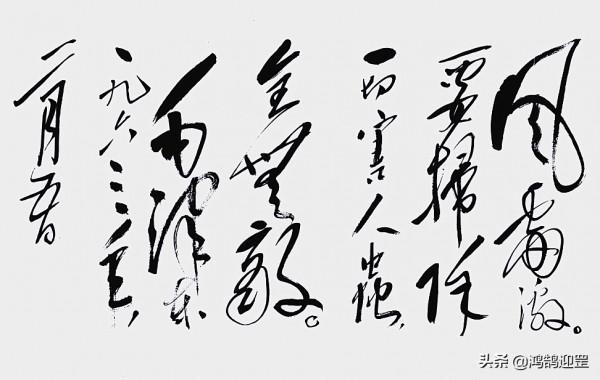 风雷激。
要掃除
一切害人蟲，
全無敵。
毛泽东
一九六三年
二月五日
头条 @鸿鹄迎罡